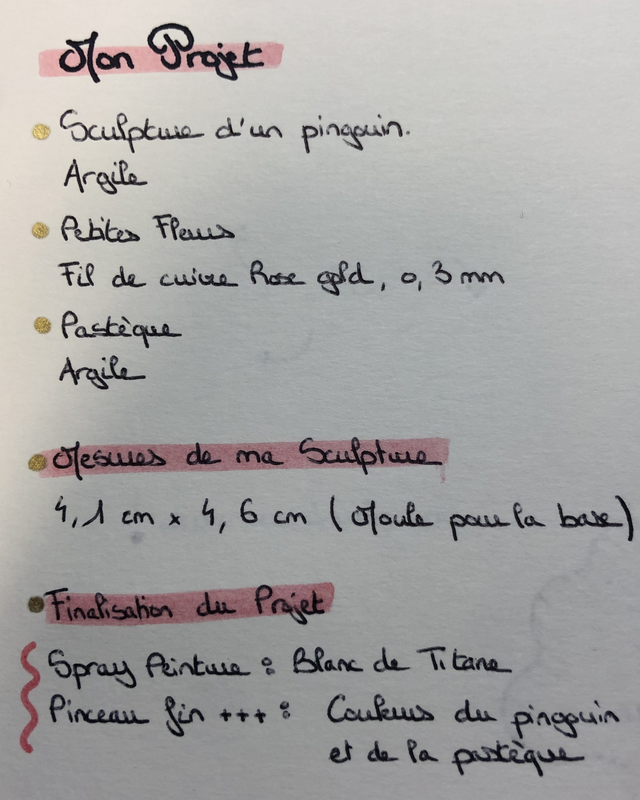 Mon Projet
Sculpture d'un pingouin.
Argile
Petites Fleurs
Fil de cuivre Rose gold, 0,3 mm
Pastèque
Argile
Mesures de ma Sculpture
4,1 cm x 4,6 cm (Moule pour la base)
Finalisation du Projet
Spray Peinture : Blanc de Titane
Pinceau fin +++ : Couleurs du pingouin
et de la pastèque